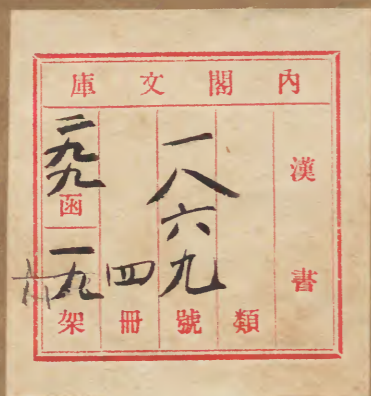 內閣文庫
漢書
類
一八六九號
四冊
二九九函
一九架